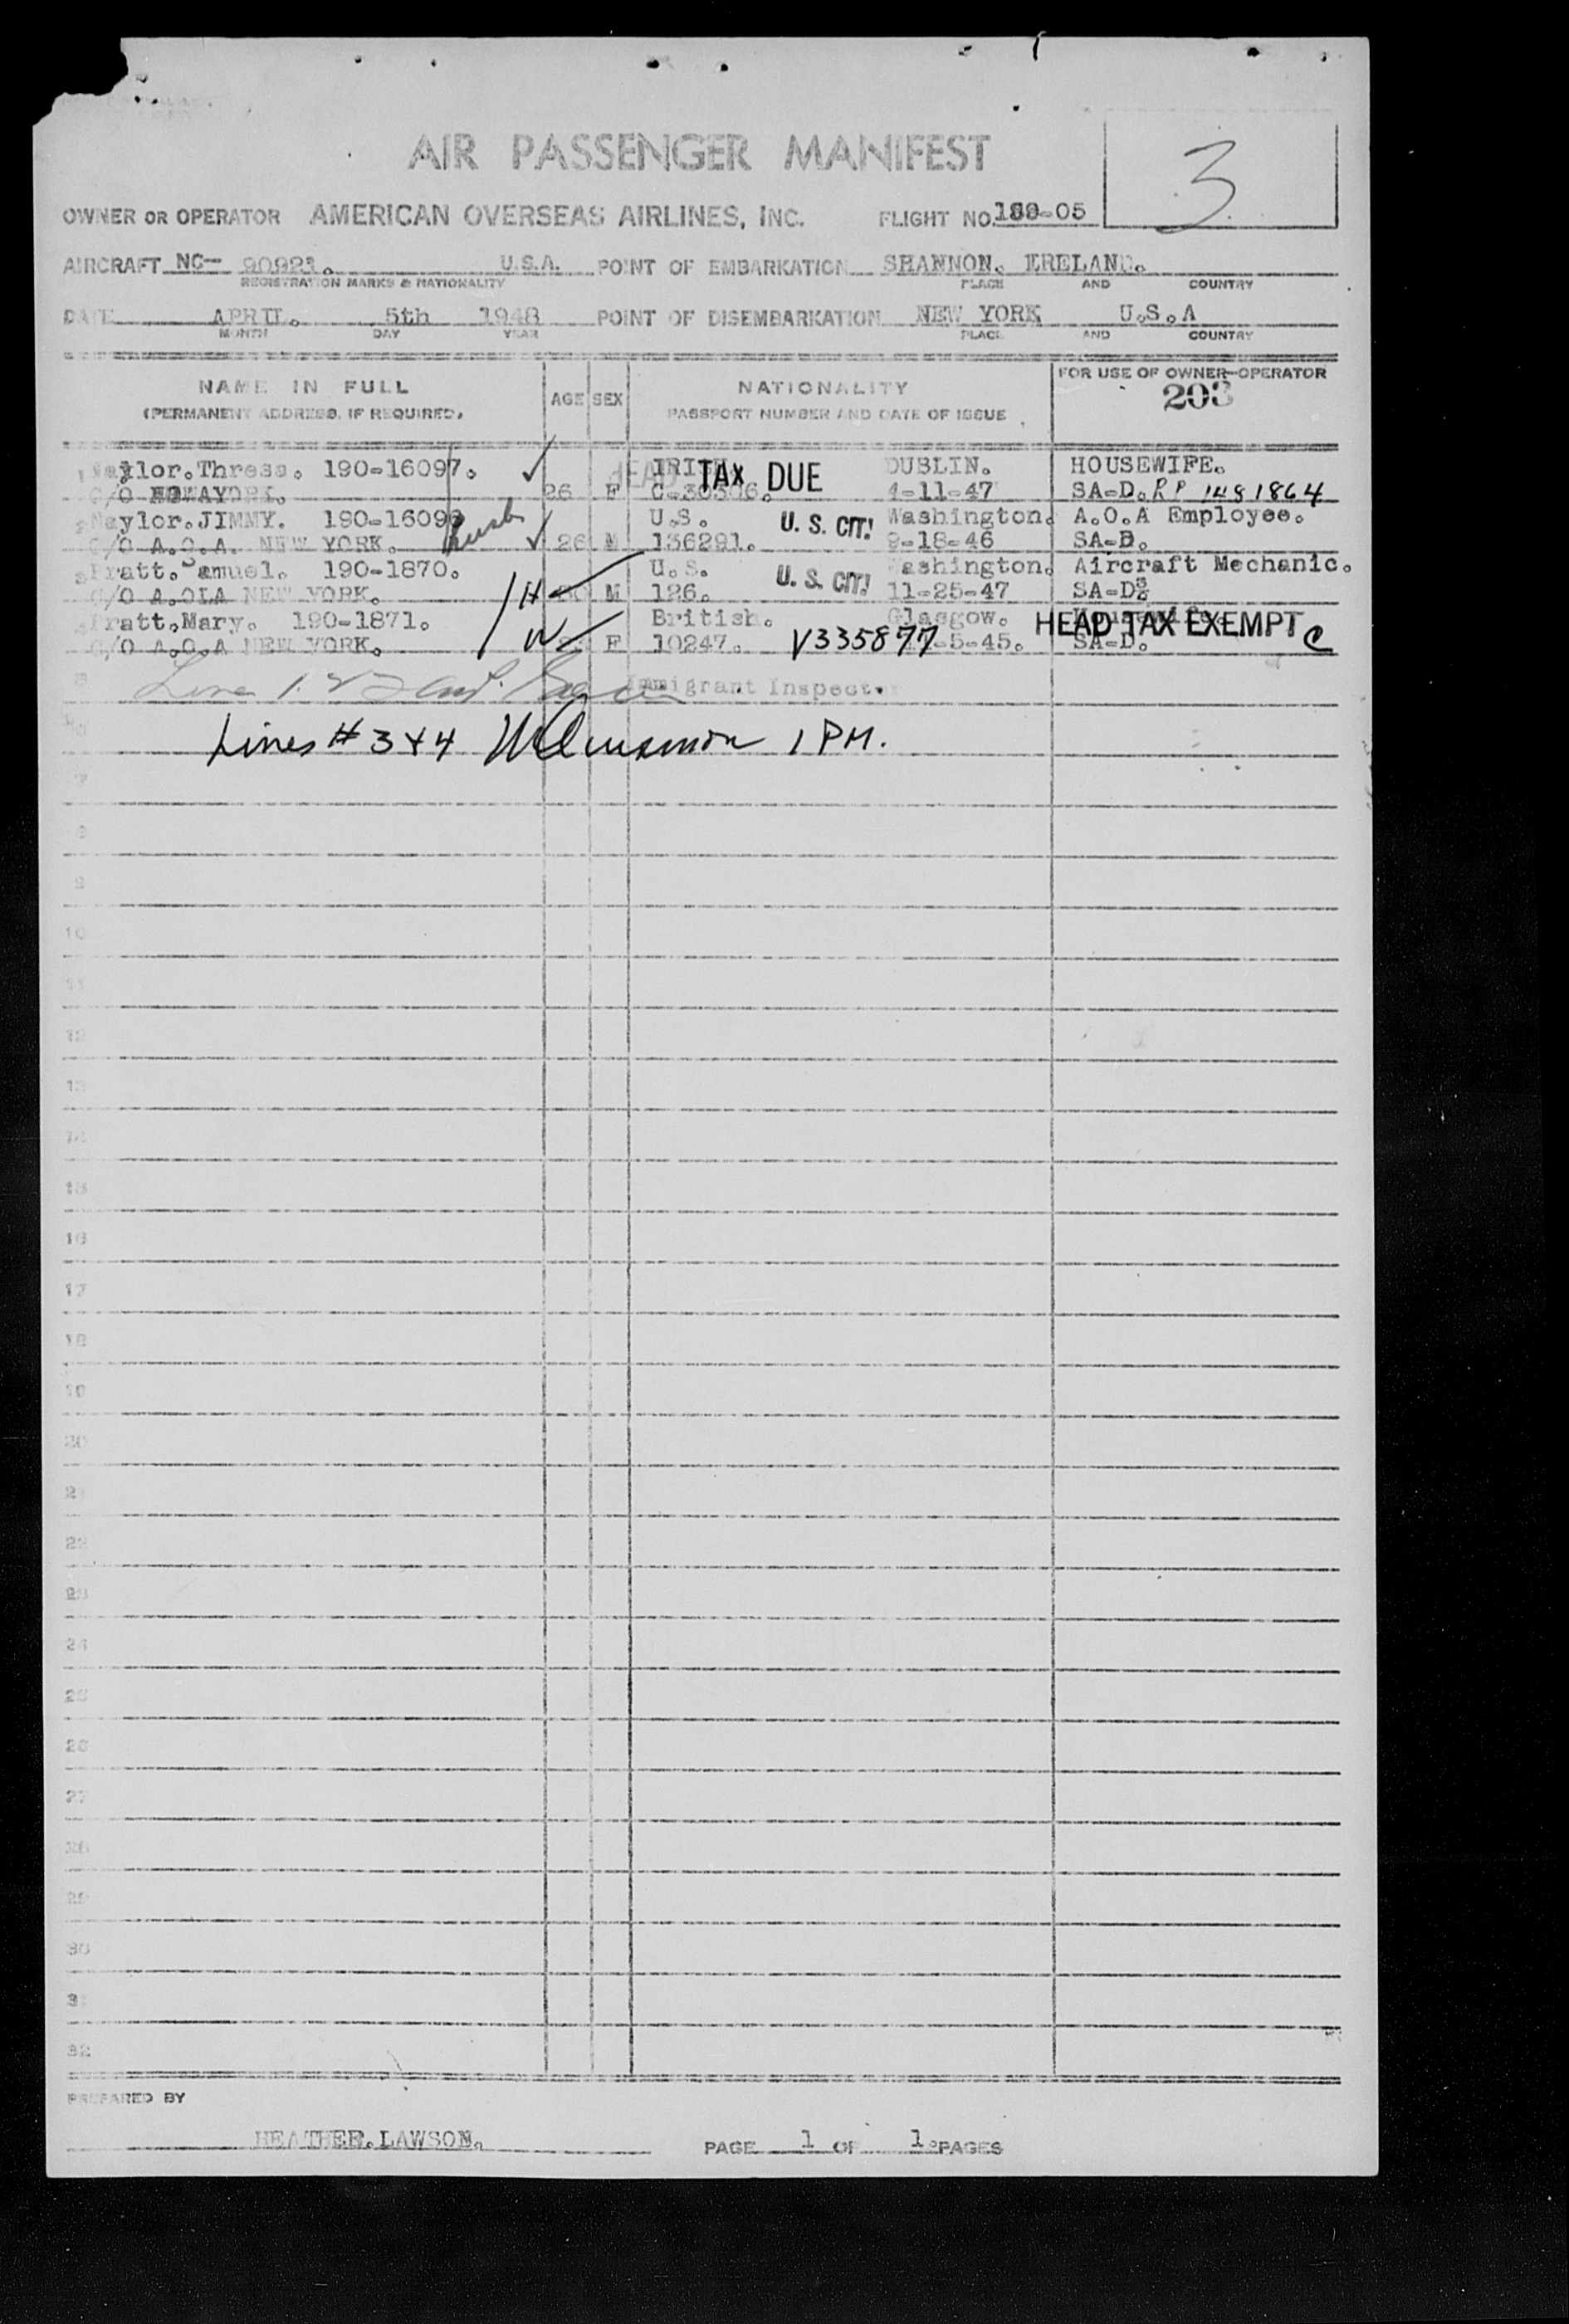 AIR PASSENGER MANIFEST
3
OWNER OR OPERATOR AMERICAN OVERSEAS AIRLINES, INC. FLIGHT NO. -05
AIRCRAFT NC- 90921. U.S.A. POINT OF EMBARKATION SHANNON. ERELAND.
REGISTRATION MARKS & NATIONALITY PLACE AND COUNTRY
DATE APRIL. 5th 1948 POINT OF DISEMBARKATION NEW YORK U.S.A
MONTH DAY YEAR PLACE AND COUNTRY
NAME IN FULL AGE SEX NATIONALITY FOR USE OF OWNER-OPERATOR
(PERMANENT ADDRESS, IF REQUIRED) PASSPORT NUMBER AND DATE OF ISSUE 203
Naylor.Thress. 190-16097. IRISH HEAD TAX DUE DUBLIN. HOUSEWIFE.
C/O 26 F C-30306. 4-11-47 SA-D. RP 1481864
Naylor.JIMMY. 190-1609 U.S. U. S. CIT! Washington. A.O.A Employee.
C/O A.O.A. NEW YORK. 26 M 136291. 9-18-46 SA-D.
3 Pratt.Samuel. 190-1870. U.S. U. S. CIT! Washington. Aircraft Mechanic.
C/O A.OIA NEW YORK. H M 126. 11-25-47 SA-D
Pratt.Mary. 190-1871. British. Glasgow. HEAD TAX EXEMPT
C/O A.O.A NEW YORK. W F 10247. V335877 -5-45. SA-D. C
Immigrant Inspector
Lines # 3 & 4 1 PM.
7
8
9
10
11
12
13
14
15
16
17
18
19
20
21
22
23
24
25
26
27
28
29
30
31
32
PREPARED BY
HEATHER.LAWSON. PAGE 1 OF 1 PAGES